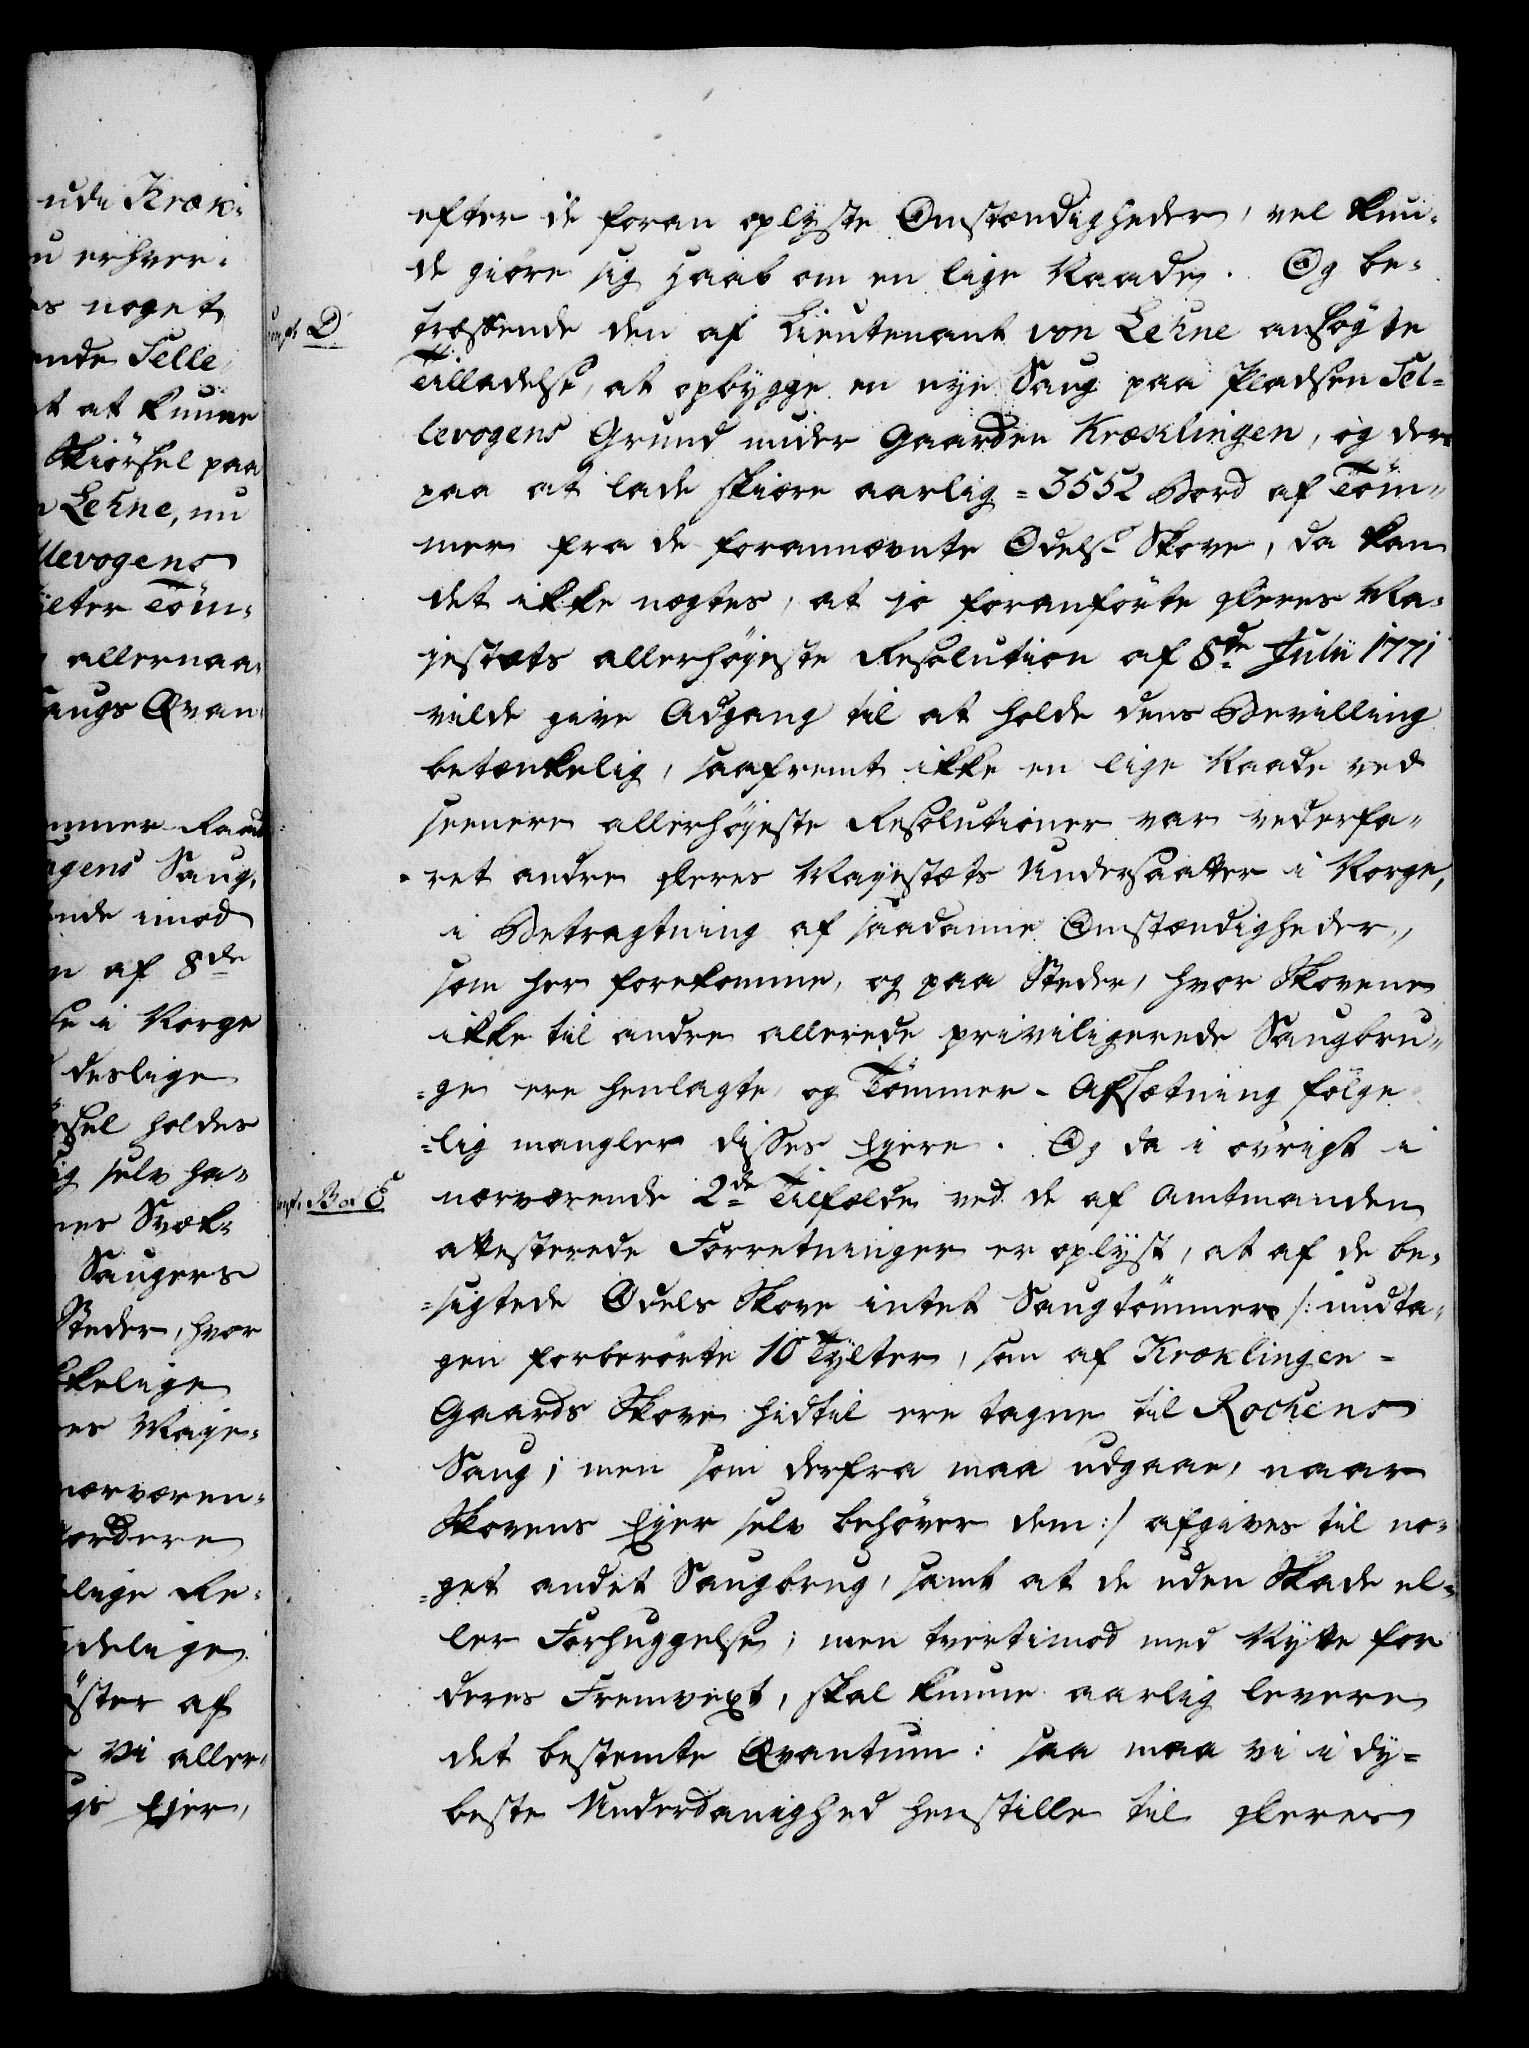 udi Kræk-
u erhver-
es noget
ende Telle
t at kunne
Skiørsel paa
n Lehne, nu
llevogens
ylter Töm-
allernaa-
augs Qvan-
mmer-Raad
agens Saug,
ende imod
n af 8de
se i Norge
deslige
sel holdes
ig selv ha-
nes Svæk-
Saugers
Steder, hvor
kkelige
es Maje-
nærværen-
fordere
lige Re-
ndelige
ster af
Vi aller-
gs Ejer,
efter de foran oplyste Omstændigheder, vel kun-
de giöre sig Haab om en lige Naade. Og be-
D træffende den af Lieutenant von Lehne ansögte
Tilladelse, at opbygge en nye Saug paa Pladsen Tel-
levogens Grund under Gaarden Kræklingen, og der-
paa at lade skiære aarlig = 3552 Bord af Töm-
mer fra de forannævnte Odels Skove, da kan
det ikke nægtes, at jo foranförte Deres Ma-
jestæts allerhöjeste Resolution af 8de Julii 1771
vilde give Adgang til at holde dens Bevilling
betænkelig, saafremt ikke en lige Naade ved
seenere allerhöjeste Resolutioner var vederfa-
ret andre Deres Majestæts Undersaatter i Norge,
i Betragtning af saadanne Omstændigheder,
som her forekomme, og paa Steder, hvor Skovene
ikke til andre allerede priviligerede Saugbru-
=ge ere henlagte, og Tömmer-Afsætning fölge-
=lig mangler disses Ejere. Og da i övrigt i
B og E nærværende 2de Tilfælde ved de af Amtmanden
attesterede Forretninger er oplyst, at af de be-
=sigtede Odels Skove intet Saugtömmer /: undta-
gen forberörte 10 Tylter, som af Kræklingen-
Gaards Skove hidtil ere tagne til Rochens
Saug; men som derfra maa udgaae, naar
Skovens Ejer selv behöver dem:/ afgives til no-
=get andet Saugbrug, samt at de uden Skade el-
ler Forhuggelse; men tvertimod med Nytte for
deres Fremvext, skal kunne aarlig levere
det bestemte Qvantum: saa maa vi i dy-
beste Underdanighed henstille til Deres